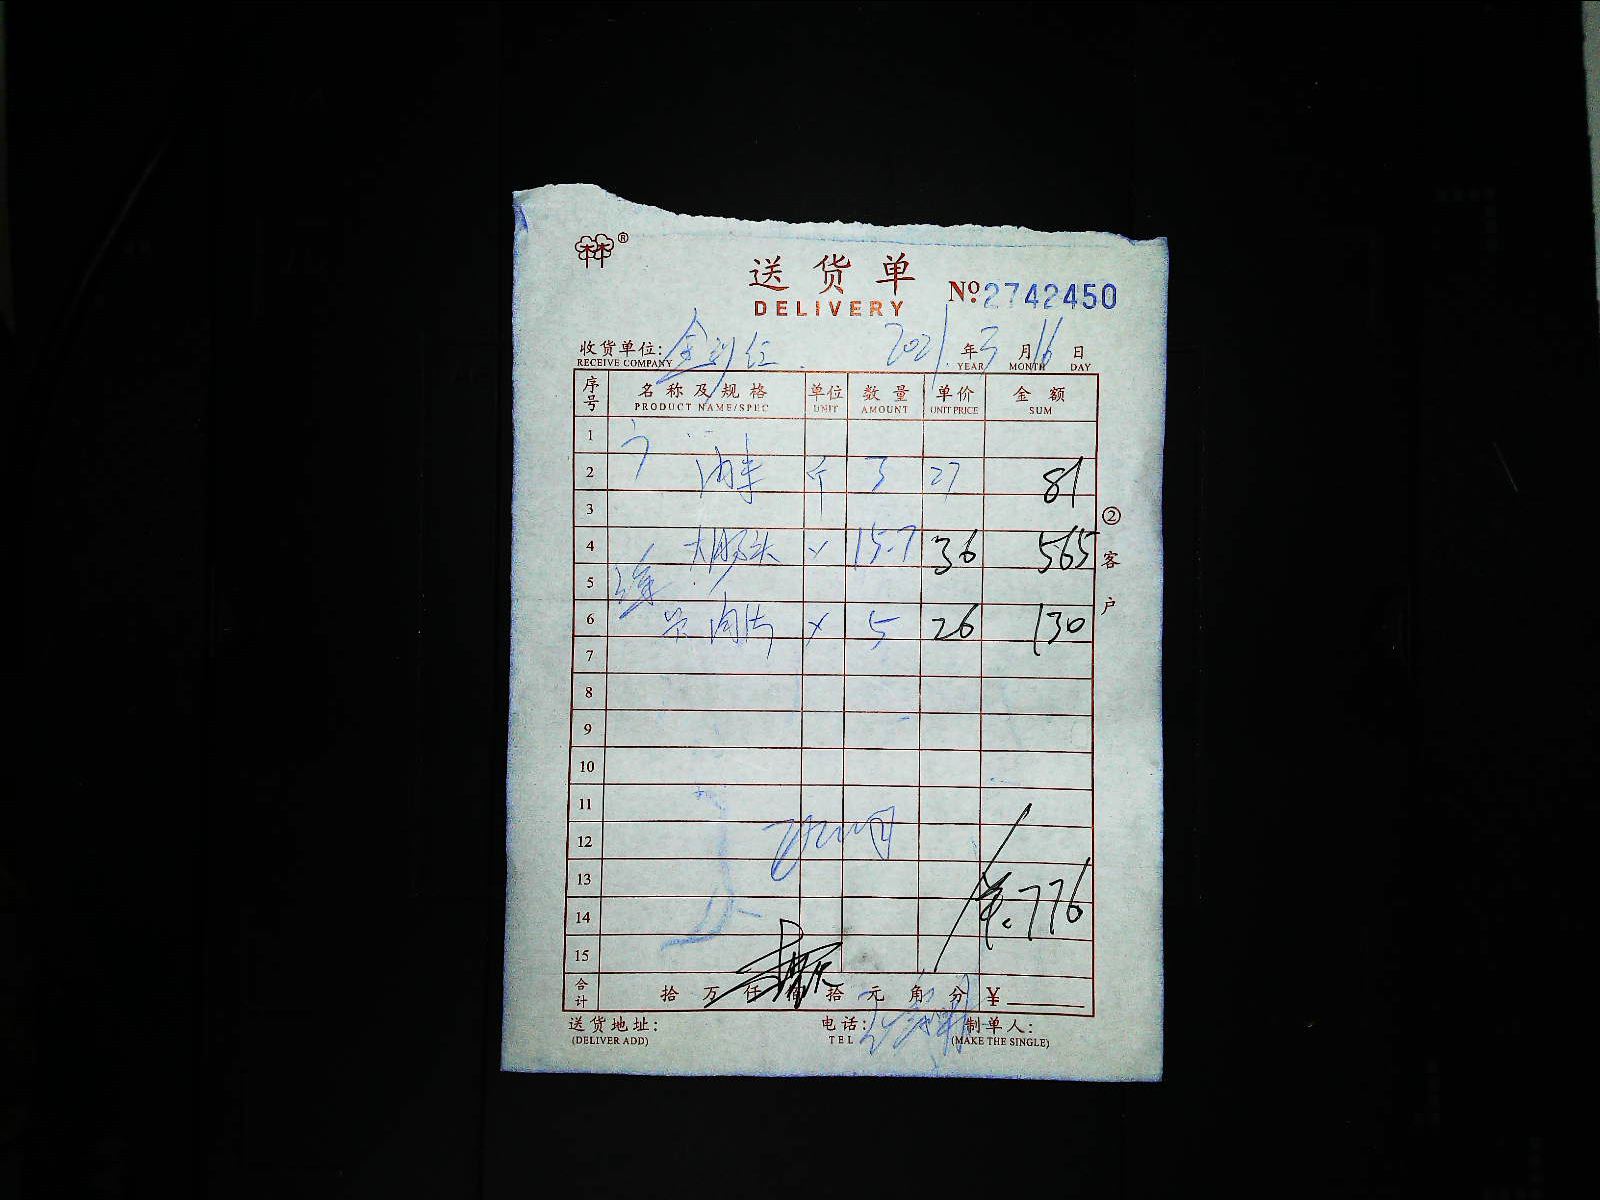 林®
送货单
DELIVERY
№2742450
收货单位: 2021年3月16日
RECEIVE COMPANY YEAR MONTH DAY
序号 名称及规格 单位 数量 单价 金额
PRODUCT NAME/SPEC UNIT AMOUNT UNIT PRICE SUM
1
2 个 3 27 81
3
4 大肠头 15.7 36 565
5
6 肉片 5 26 130
7
8
9
10
11
12
13
14 776
15
合计 拾 万 仟 佰 拾 元 角 分 ¥
② 客户
送货地址: 电话: 制单人:
(DELIVER ADD) TEL (MAKE THE SINGLE)